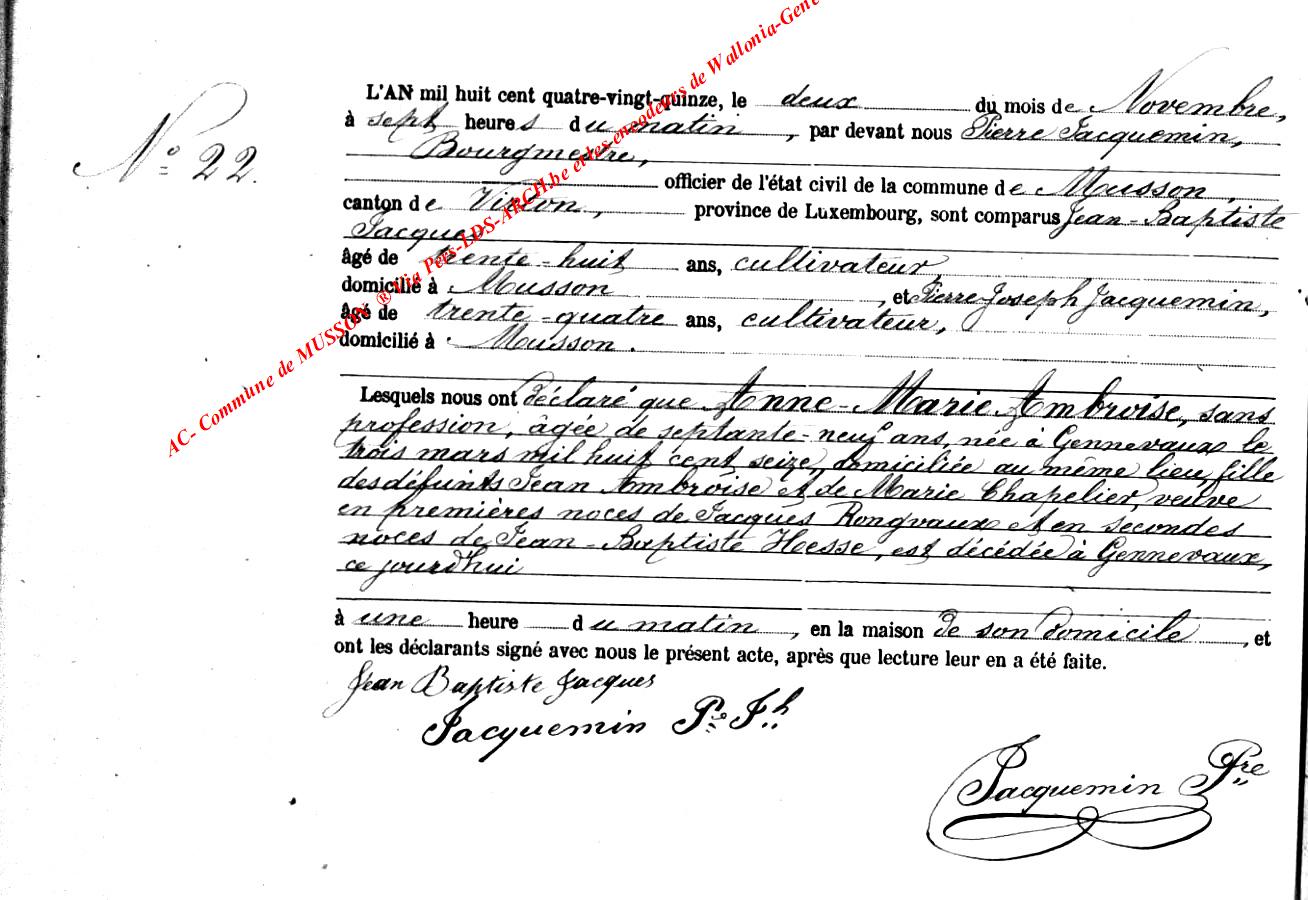 N° 22.
L'AN mil huit cent quatre-vingt-quinze, le deux du mois de Novembre,
à sept heures du matin, par devant nous Pierre Jacquemin,
Bourgmestre,
officier de l'état civil de la commune de Musson,
canton de Virton, province de Luxembourg, sont comparus Jean-Baptiste
Jacques
âgé de trente-huit ans, cultivateur,
domicilié à Musson, et Pierre Joseph Jacquemin,
âgé de trente-quatre ans, cultivateur,
domicilié à Musson.
Lesquels nous ont déclaré que Anne-Marie Ambroise, sans
profession, âgée de septante-neuf ans, née à Gennevaux le
trois mars mil huit cent seize, domiciliée au même lieu, fille
des défunts Jean Ambroise et de Marie Chapelier, veuve
en premières noces de Jacques Rongvaux et en secondes
noces de Jean-Baptiste Hesse, est décédée à Gennevaux,
ce jourd'hui
à une heure du matin, en la maison de son domicile, et
ont les déclarants signé avec nous le présent acte, après que lecture leur en a été faite.
Jean Baptiste Jacques
Jacquemin Pre Jh
Jacquemin Pre
AC- Commune de MUSSON ® Via Pers-LDS-ARCH.be et les encodeurs de Wallonia-Gene